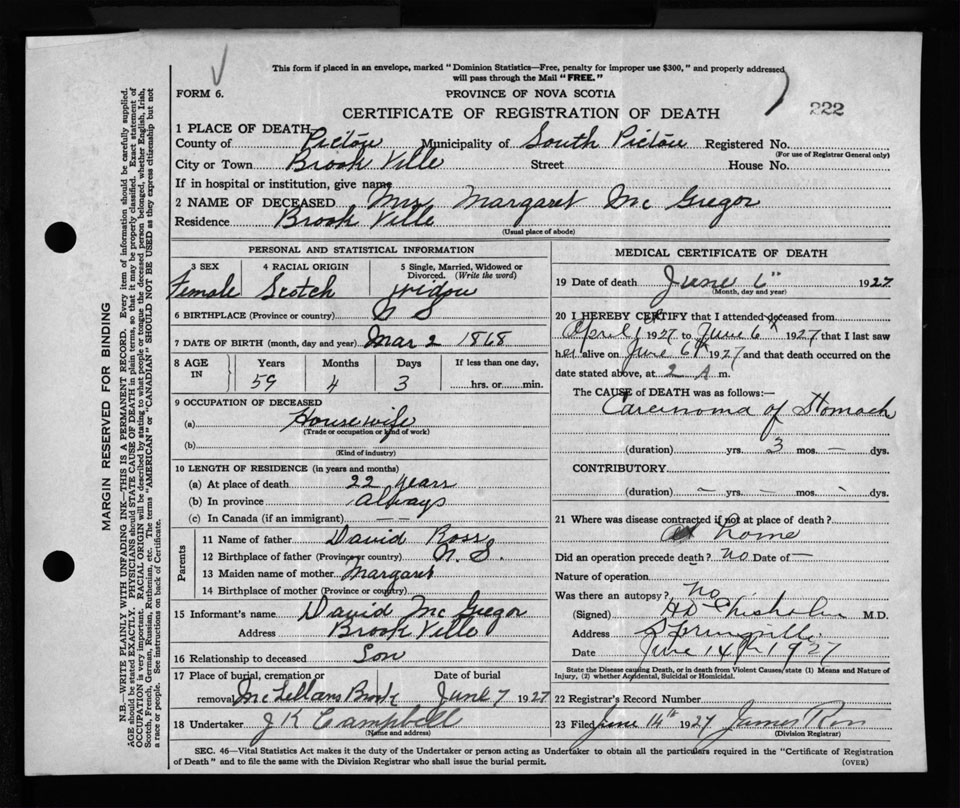 This form if placed in an envelope, marked "Dominion Statistics—Free, penalty for improper use $300," and properly addressed
will pass through the Mail "FREE."
FORM 6.
PROVINCE OF NOVA SCOTIA
222
CERTIFICATE OF REGISTRATION OF DEATH
1 PLACE OF DEATH
County of Pictou Municipality of South Pictou Registered No.
(For use of Registrar General only)
City or Town Brook Ville Street House No.
If in hospital or institution, give name
2 NAME OF DECEASED Mrs Margaret Mc Gregor
Residence Brook Ville
(Usual place of abode)
PERSONAL AND STATISTICAL INFORMATION
3 SEX 4 RACIAL ORIGIN 5 Single, Married, Widowed or
Divorced. (Write the word)
Female Scotch widow
6 BIRTHPLACE (Province or country) N S
7 DATE OF BIRTH (month, day and year) Mar 2 1868
8 AGE IN Years Months Days If less than one day,
59 4 3 hrs. or min.
9 OCCUPATION OF DECEASED
(a) Housewife
(Trade or occupation or kind of work)
(b)
(Kind of industry)
10 LENGTH OF RESIDENCE (in years and months)
(a) At place of death 22 years
(b) In province always
(c) In Canada (if an immigrant) — —
Parents
11 Name of father David Ross
12 Birthplace of father (Province or country) N. S.
13 Maiden name of mother Margaret
14 Birthplace of mother (Province or country)
15 Informant's name David Mc Gregor
Address Brook Ville
16 Relationship to deceased Son
17 Place of burial, cremation or Date of burial
removal McLellans Brook June 7 1927
18 Undertaker J K Campbell
(Name and address)
MEDICAL CERTIFICATE OF DEATH
19 Date of death June 6th 1927
(Month, day and year)
20 I HEREBY CERTIFY that I attended deceased from
April 1927 to June 6th 1927 that I last saw
her alive on June 6th 1927 and that death occurred on the
date stated above, at 2 A m.
The CAUSE of DEATH was as follows:
Carcinoma of Stomach
(duration) yrs. 3 mos. — dys.
CONTRIBUTORY
(duration) — yrs. — mos. — dys.
21 Where was disease contracted if not at place of death?
at home
Did an operation precede death? no Date of —
Nature of operation
Was there an autopsy? no
(Signed) Chisholm M.D.
Address Springville
Date June 14th 1927
State the Disease causing Death, or in death from Violent Causes/state (1) Means and Nature of
Injury, (2) whether Accidental, Suicidal or Homicidal.
22 Registrar's Record Number
23 Filed June 14th 1927 James Ross
(Division Registrar)
SEC. 46—Vital Statistics Act makes it the duty of the Undertaker or person acting as Undertaker to obtain all the particulars required in the "Certificate of Registration
of Death" and to file the same with the Division Registrar who shall issue the burial permit.
(OVER)
MARGIN RESERVED FOR BINDING
N.B.—WRITE PLAINLY WITH UNFADING INK—THIS IS A PERMANENT RECORD. Every item of information should be carefully supplied.
AGE should be stated EXACTLY. PHYSICIANS should STATE CAUSE OF DEATH in plain terms, so that it may be properly classified. Exact statement of
OCCUPATION is very important. RACIAL ORIGIN will be described by stating to what people or tongue the deceased person belonged, whether English, Irish,
Scotch, French, German, Russian, Ruthenian, etc. The terms "AMERICAN" or "CANADIAN" SHOULD NOT BE USED as they express citizenship but not
a race or people. See instructions on back of Certificate.